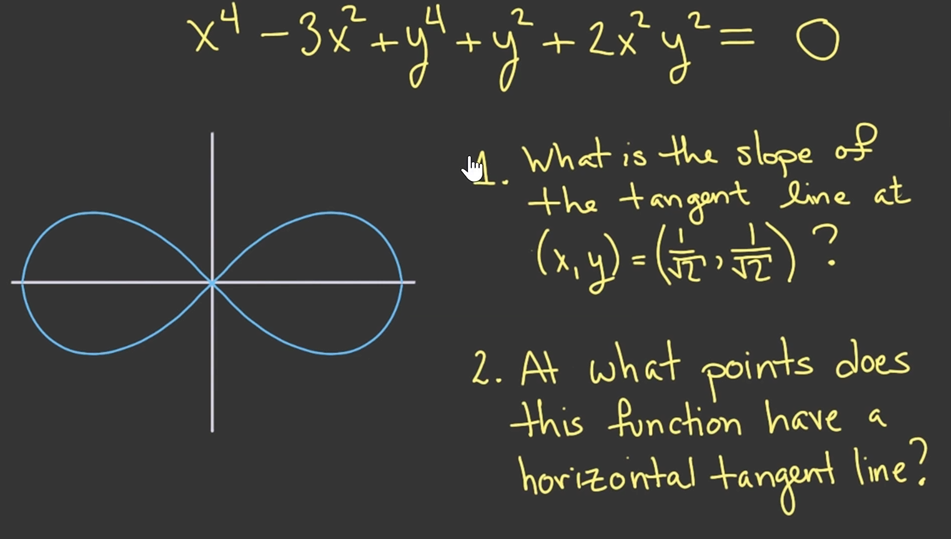 x⁴ − 3x² + y⁴ + y² + 2x²y² = 0
1. What is the slope of
the tangent line at
(x, y) = (1/√2, 1/√2) ?
2. At what points does
this function have a
horizontal tangent line?